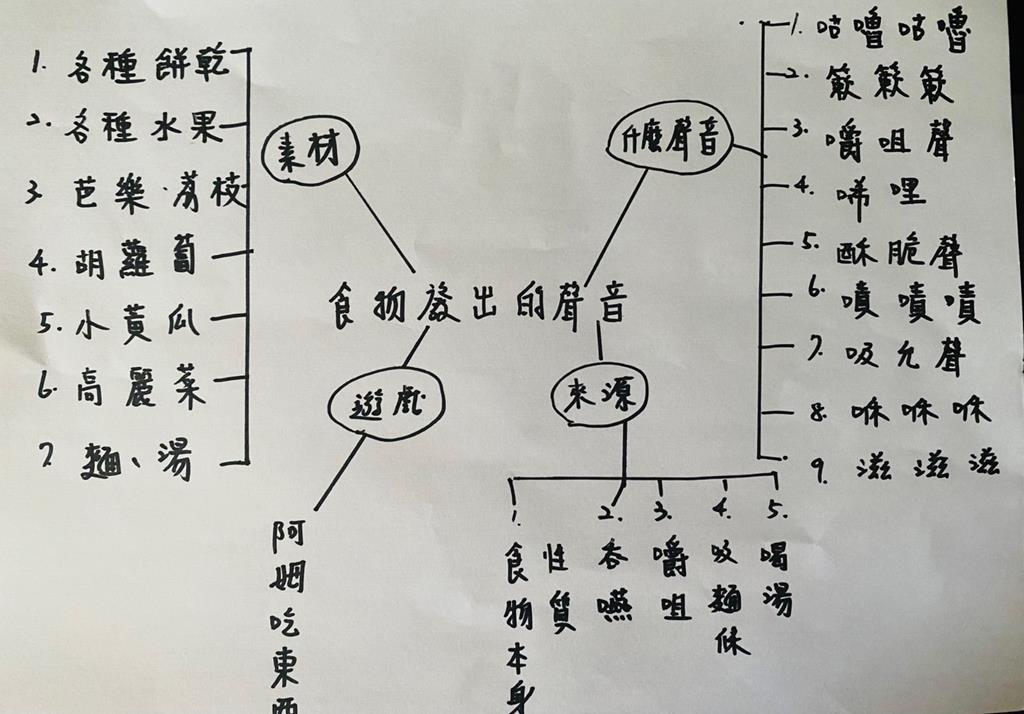 食物發出的聲音
素材
1. 各種餅乾
2. 各種水果
3. 芭樂．荔枝
4. 胡蘿蔔
5. 小黃瓜
6. 高麗菜
7. 麵、湯
什麼聲音
1. 咕嚕咕嚕
2. 簌簌簌
3. 嚼咀聲
4. 唏哩
5. 酥脆聲
6. 嘖嘖嘖
7. 吸允聲
8. 咻咻咻
9. 滋滋滋
遊戲
阿姆吃東西
來源
1. 食物本身
性質
2. 吞嚥
3. 嚼咀
4. 吸麵條
5. 喝湯